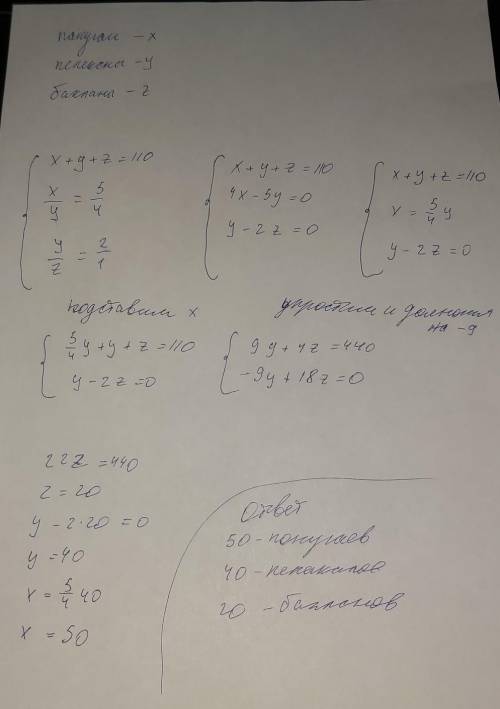 попугаи – x
пеликаны – y
бакланы – z
x + y + z = 110
x/y = 5/4
y/z = 2/1
x + y + z = 110
4x – 5y = 0
y – 2z = 0
x + y + z = 110
x = 5/4 y
y – 2z = 0
подставим x
5/4 y + y + z = 110
y – 2z = 0
упростим и домножим
на –9
9y + 4z = 440
–9y + 18z = 0
22z = 440
z = 20
y – 2·20 = 0
y = 40
x = 5/4 40
x = 50
Ответ
50 – попугаев
40 – пеликанов
20 – бакланов